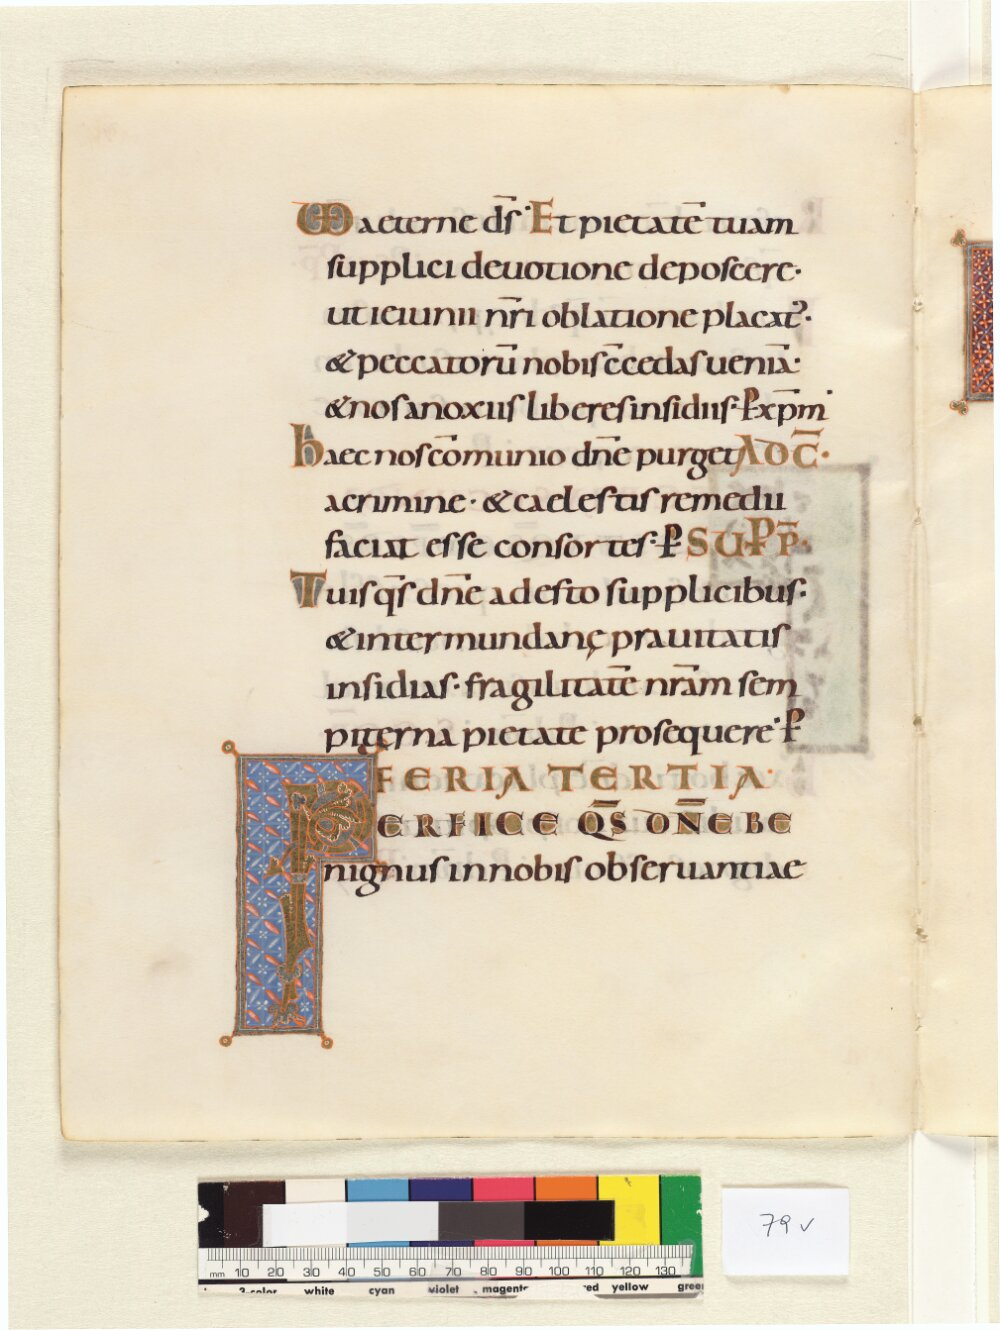 VD aeterne dſ̄· Et pietatē tuam
ſupplici deuotione depoſcere·
ut ieiunii nr̄i oblatione placat᾽·
& peccatorū nobiſ c̄cedaſ ueniā·
& noſ a noxiiſ libereſ inſidiiſ· ꝑ xp̄m
haec noſ cōmunio dn̄e purget AD C̄·
a crimine· & caeleſtiſ remedii
faciat eſſe conſorteſ· ꝑ SUꝑ P̄·
Tuiſ qſ̄ dn̄e adeſto ſupplicibuſ·
& inter mundanę prauitatiſ
inſidiaſ· fragilitatē nr̄am ſem
piterna pietate proſequere· ꝑ
FERIA TERTIA·
PERFICE QS̄ DN̄E BE
nignuſ in nobiſ obſeruantiae
79v
mm 10 20 30 40 50 60 70 80 90 100 110 120 130
3-color white cyan violet magenta red yellow green